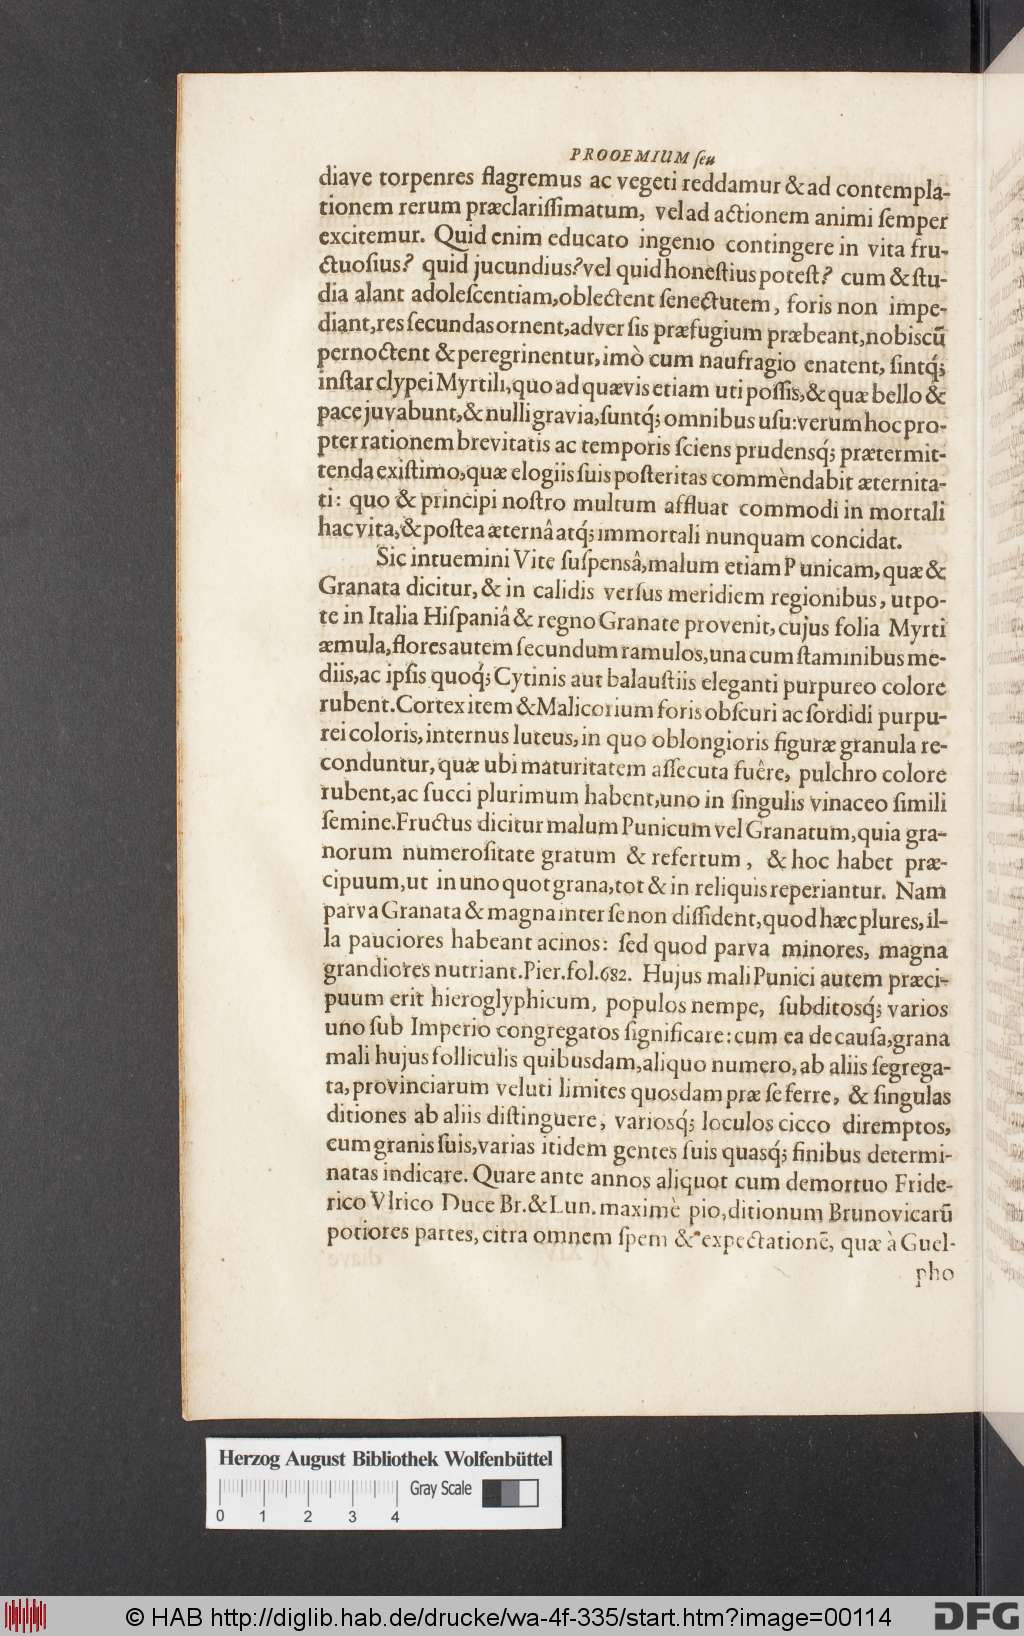 PROOEMIUM ſeu
diave torpenres flagremus ac vegeti reddamur & ad contempla-
tionem rerum præclariſſimatum, vel ad actionem animi ſemper
excitemur. Quid enim educato ingenio contingere in vita fru-
ctuoſius? quid jucundius? vel quid honeſtius poteſt? cum & ſtu-
dia alant adoleſcentiam, oblectent ſenectutem, foris non impe-
diant, res ſecundas ornent, adver ſis præfugium præbeant, nobiscũ
pernoctent & peregrinentur, imò cum naufragio enatent, ſintq́;
inſtar clypei Myrtili, quo ad quævis etiam uti poſſis, & quæ bello &
pace juvabunt, & nulli gravia, ſuntq́; omnibus uſu: verum hoc pro-
pter rationem brevitatis ac temporis ſciens prudensq́; prætermit-
tenda exiſtimo, quæ elogiis ſuis poſteritas commèndabit æternita-
ti: quo & principi noſtro multum affluat commodi in mortali
hac vita, & poſtea æternâ atq́; immortali nunquam concidat.
Sic intuemini Vite ſuſpensâ, malum etiam Punicam, quæ &
Granata dicitur, & in calidis verſus meridiem regionibus, utpo-
te in Italia Hiſpaniâ & regno Granate provenit, cujus folia Myrti
æmula, flores autem ſecundum ramulos, una cum ſtaminibus me-
diis, ac ipſis quoq́; Cytinis aut balauſtiis eleganti purpureo colore
rubent. Cortex item & Malicorium foris obſcuri ac ſordidi purpu-
rei coloris, internus luteus, in quo oblongioris figuræ granula re-
conduntur, quæ ubi maturitatem aſſecuta fuêre, pulchro colore
rubent, ac ſucci plurimum habent, uno in ſingulis vinaceo ſimili
ſemine. Fructus dicitur malum Punicum vel Granatum, quia gra-
norum numeroſitate gratum & refertum, & hoc habet præ-
cipuum, ut in uno quot grana, tot & in reliquis reperiantur. Nam
parva Granata & magna inter ſe non diſſident, quod hæc plures, il-
la pauciores habeant acinos: ſed quod parva minores, magna
grandiores nutriant. Pier. fol. 682. Hujus mali Punici autem præci-
puum erit hieroglyphicum, populos nempe, ſubditosq́; varios
uno ſub Imperio congregatos ſignificare: cum ea de cauſa, grana
mali hujus folliculis quibusdam, aliquo numero, ab aliis ſegrega-
ta, provinciarum veluti limites quosdam præ ſe ferre, & ſingulas
ditiones ab aliis diſtinguere, variosq́; loculos cicco diremptos,
cum granis ſuis, varias itidem gentes ſuis quasq́; finibus determi-
natas indicare. Quare ante annos aliquot cum demortuo Fride-
rico Vlrico Duce Br. & Lun. maximè pio, ditionum Brunovicarũ
potiores partes, citra omnem ſpem & expectationẽ, quæ à Guel-
pho
Herzog August Bibliothek Wolfenbüttel
Gray Scale
0 1 2 3 4
© HAB http://diglib.hab.de/drucke/wa-4f-335/start.htm?image=00114
DFG